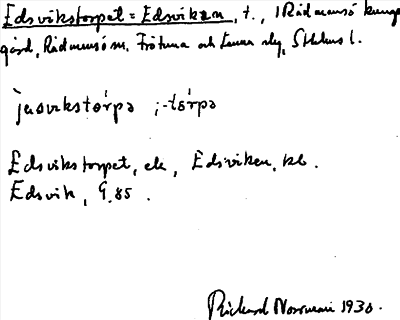 Edsvikstorpet = Edsviken, t., 1 Rådmansö kungs
gård, Rådmansö sn. Frötuna och Länna slg, Sthlms l.
jɛdsvikstɔrpə ; -tɔ́rpə
Edsvikstorpet, ek, Edsviken, kb.
Edsvik, G. 85.
Rickard Norrman 1930.